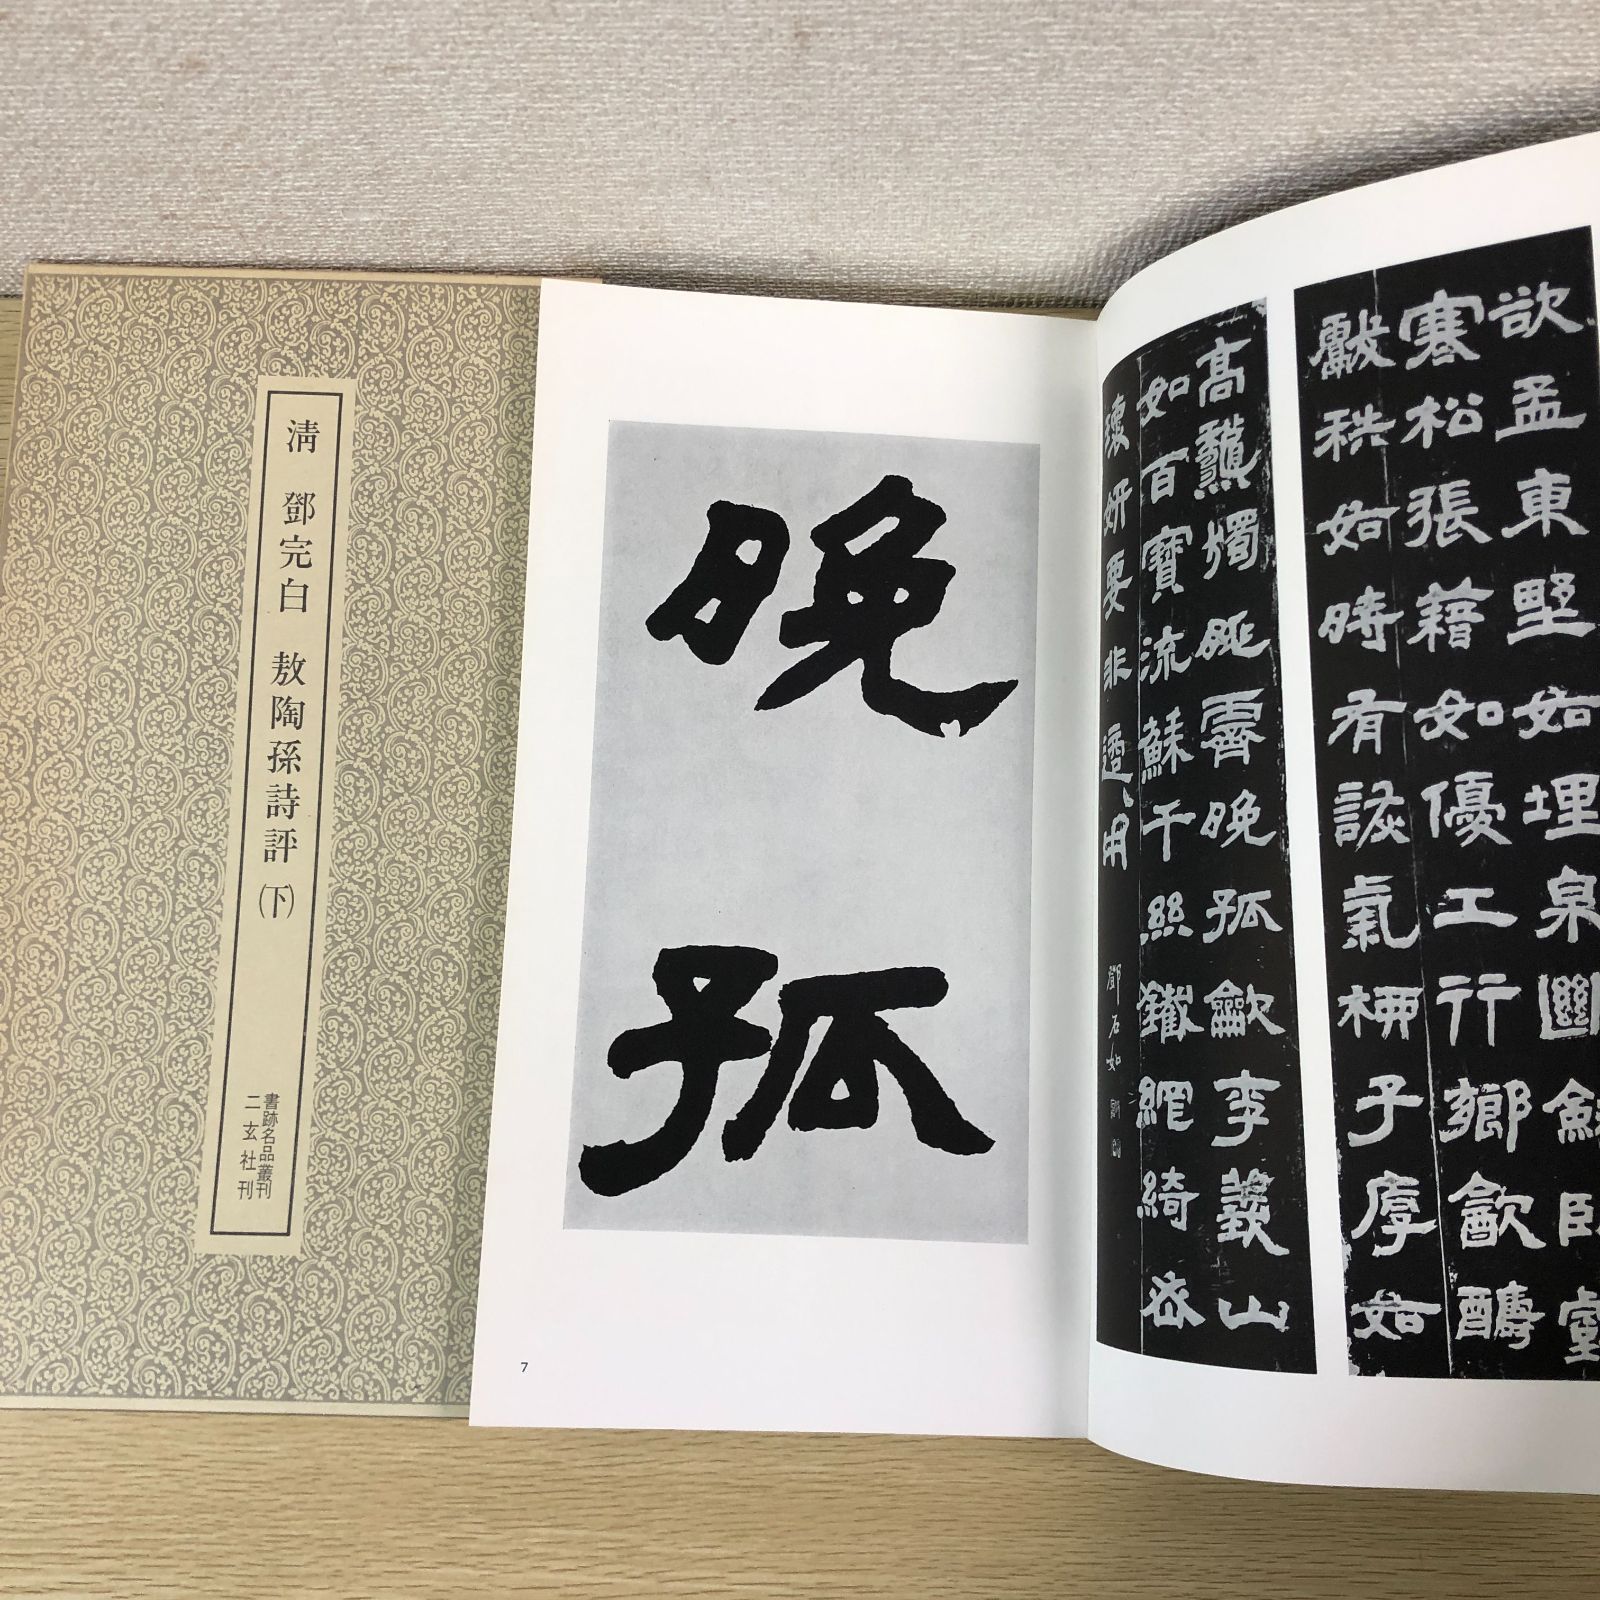 清 鄧完白 敖陶孫詩評(下)
書跡名品叢刊
二玄社刊
晚
孤
7
欲孟東野如埋泉斷劍臥壑
寒松張籍如優工行鄉飲醻
獻秩如時有詼氣柳子厚如
高龝獨眺霽晚孤龡李義山
如百寶流蘇千絲鐵網綺密
瓌妍要非適用 鄧石如